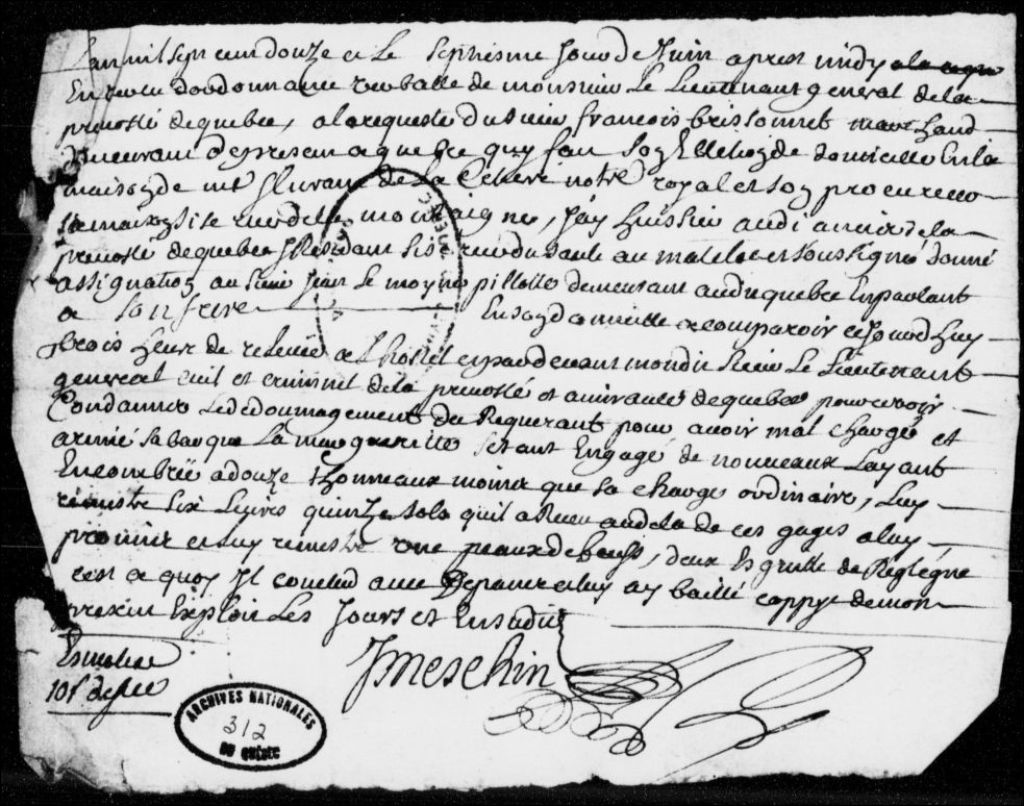 Lan mil sept cent douze et le septiesme Jour de Juin apres midy
En vertu dordonnance verballe de monsieur Le Lieutenant general dela
prevosté de quebec, a la requeste du sieur francois brissonnet marchand
demeurant de present a quebec quy fait son Ellection de domicille En la
maison de me florent de La Cetiere notre royal et son procureur
sa maison size rue de la montaigne, Jay huissier audiancier de la
prevosté de quebec Residant size rue du sault au matelot soussigné donné
assignation au sieur Jean Le moyne pillotte demeurant audit quebec En parlant
a Son frere En son domicille a comparoir ce Jourdhuy
trois heure de relevée a Lhostel et pardevant mondit sieur Le Lieutenant
general civil et criminel de la prevosté et amirauté de quebec pour se voir
Condanner Le dedoumagement du Requerant pour avoir mal chargé et
arimé sa barque La margueritte sestant Engagé de nouveaux Layant
Encombrée a douze thonneaux moins que sa charge ordinaire, Luy
remestre six Livres quinze sols quil a Receu audela de ces gages a luy
promis et luy remestre une peaux de beuf, deux
cest a quoy Jl conclud avec Depans et luy ay baillé coppye de mon
present Exploit Les Jours et En susdit
JMeschin
10s
ARCHIVES NATIONALES
312
DU QUÉBEC